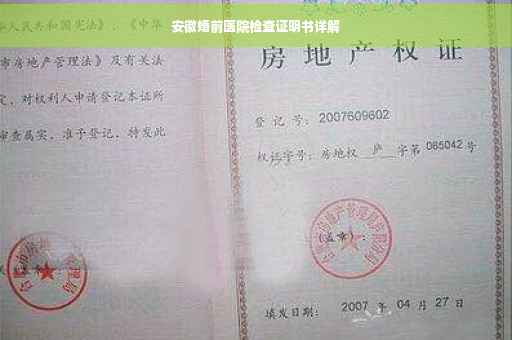 安徽婚前医院检查证明书详解
人民共和国宪法》、《中华
市房地产管理法》及有关法
定,对权利人申请登记本证所
审查属实,准予登记,特发此
房地产权证
登记号:2007609602
权证字号:房地权 庐 字第 065042 号
(盖章):
填发日期: 2007 年 04 月 27 日